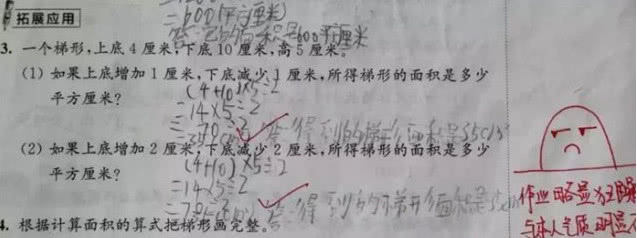 =600(平方厘米)
拓展应用
3. 一个梯形,上底4厘米,下底10厘米,高5厘米。
(1) 如果上底增加1厘米,下底减少1厘米,所得梯形的面积是多少
平方厘米?
(4+10)×5÷2
=14×5÷2
答:得到的梯形面积是35cm²
(2) 如果上底增加2厘米,下底减少2厘米,所得梯形的面积是多少
平方厘米?
(4+10)×5÷2
=14×5÷2
答:得到的梯形面积是
4. 根据计算面积的算式把梯形画完整。
作业略显狂躁
与本人气质明显